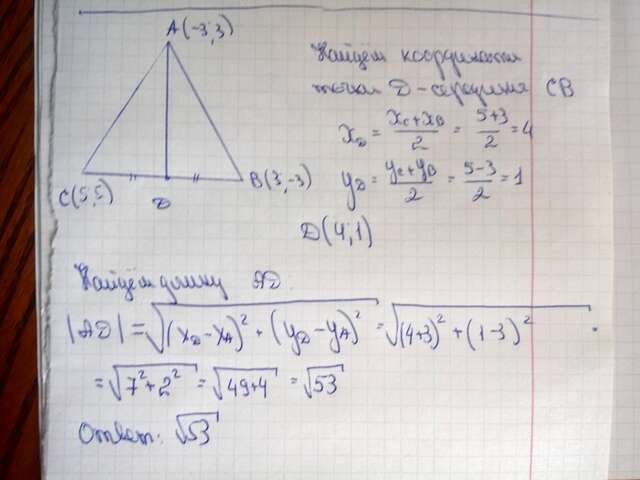 A(-3;3)
C(5;5)
D
B(3;-3)
Найдём координаты
точки D - середина CB
x_D = (x_C + x_B)/2 = (5+3)/2 = 4
y_D = (y_C + y_B)/2 = (5-3)/2 = 1
D(4;1)
Найдём длину AD.
|AD| = √((x_D - x_A)² + (y_D - y_A)²) = √((4+3)² + (1-3)²) .
= √(7² + 2²) = √(49+4) = √53
Ответ: √53